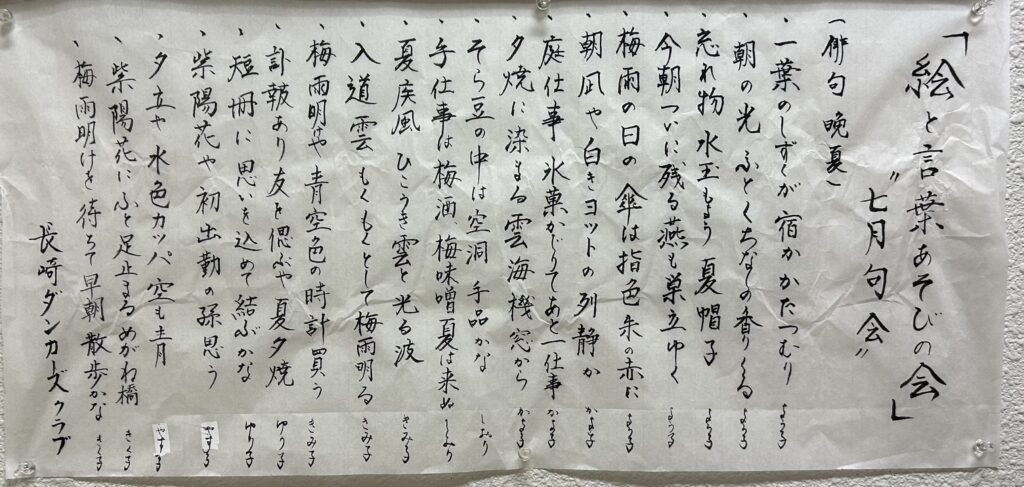 「絵と言葉あそびの会」
〝七月句会〟
(俳句 晩夏)
・一葉のしずくが宿かかたつむり よう子
・朝の光 ふとくちなしの香りくる よう子
・忘れ物 水玉もよう 夏帽子 よう子
・今朝ついに残る燕も巣立ゆく よう子
・梅雨の日の傘は指色朱の赤に
・朝凪や白きヨットの列静か かな子
・庭仕事 氷菓かじりてあと一仕事 かな子
・夕焼に染まる雲海機窓から かな子
・そら豆の中は空洞手品かな しおり
・手仕事は梅酒 梅味噌夏は来ぬ しおり
・夏疾風 ひこうき雲と光る波 きみ子
・入道雲 もくもくとして梅雨明る きみ子
・梅雨明けや青空色の時計買う きみ子
・訃報あり友を偲ぶや夏夕焼 ゆり子
・短冊に思いを込めて結ぶかな ゆり子
・紫陽花や初出勤の孫思う やす子
・夕立や水色カッパ空も青 やす子
・紫陽花にふと足止まるめがね橋 きく子
・梅雨明けを待ちて早朝散歩かな きく子
長崎ダンカーズクラブ